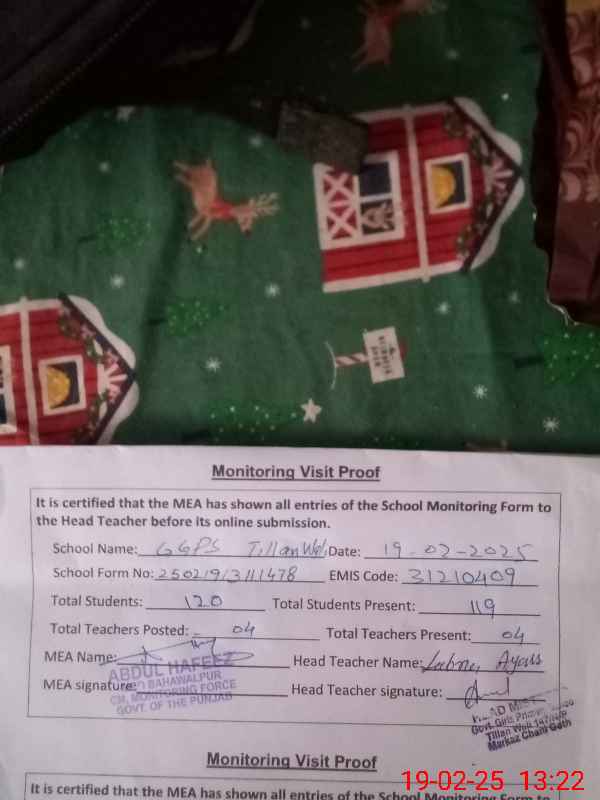 Monitoring Visit Proof
It is certified that the MEA has shown all entries of the School Monitoring Form to
the Head Teacher before its online submission.
School Name: GGPS Tillan Wali Date: 19-02-2025
School Form No: EMIS Code: 31210409
Total Students: 120 Total Students Present: 119
Total Teachers Posted: 04 Total Teachers Present: 04
MEA Name: Head Teacher Name:
ABDUL HAFEEZ
BAHAWALPUR
MEA signature: Head Teacher signature:
CM, MONITORING FORCE
GOVT. OF THE PUNJAB
Govt. Girls
Tillan Wali
Markaz Chani Goth
Monitoring Visit Proof
19-02-25 13:22
It is certified that the MEA has shown all entries of the School Monitoring Form to